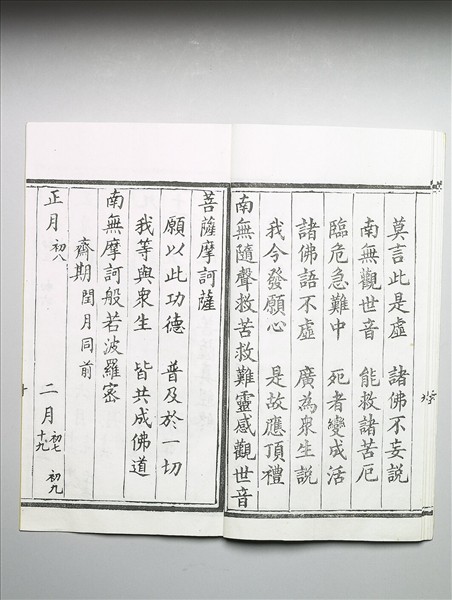 莫言此是虛　諸佛不妄說
南無觀世音　能救諸苦厄
臨危急難中　死者變成活
諸佛語不虛　廣為衆生說
我今發願心　是故應頂禮
南無隨聲救苦救難靈感觀世音
菩薩摩訶薩
願以此功德　普及於一切
我等與衆生　皆共成佛道
南無摩訶般若波羅密
齋期　閏月同前
正月　初八　二月　初七　初九　十九